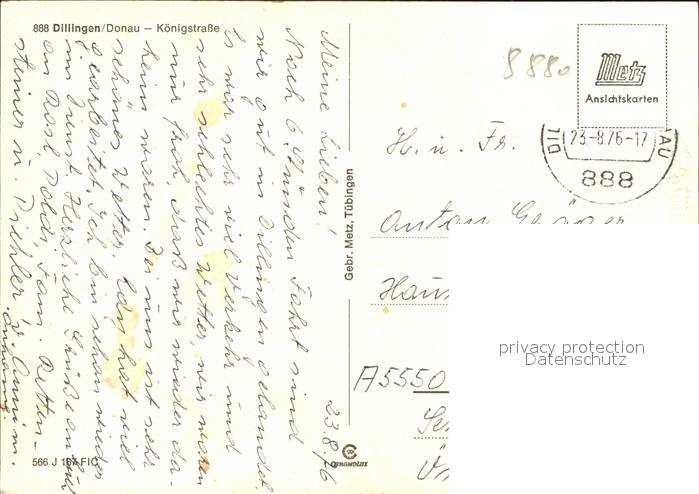 888 Dillingen/Donau — Königstraße
23.8.76
Meine Lieben!
Nach 6 Stunden Fahrt sind
wir gut in Dillingen gelandet
Es war sehr viel Verkehr und
sehr schlechtes Wetter, wir waren
nur froh, daß wir wieder da-
heim waren. Bei uns ist sehr
schönes Wetter. hat viel
gearbeitet. Ich bin schon wieder
im Dienst Herzliche Grüße an Euch
an Fam. Retten-
steiner u.
566 J
Gebr. Metz, Tübingen
CEKOMOLUX
8880
Metz
Ansichtskarten
DIL AU
23.-8.76-17
888
H. u. Fr.
Anton
Haus
A5550
privacy protection
Datenschutz